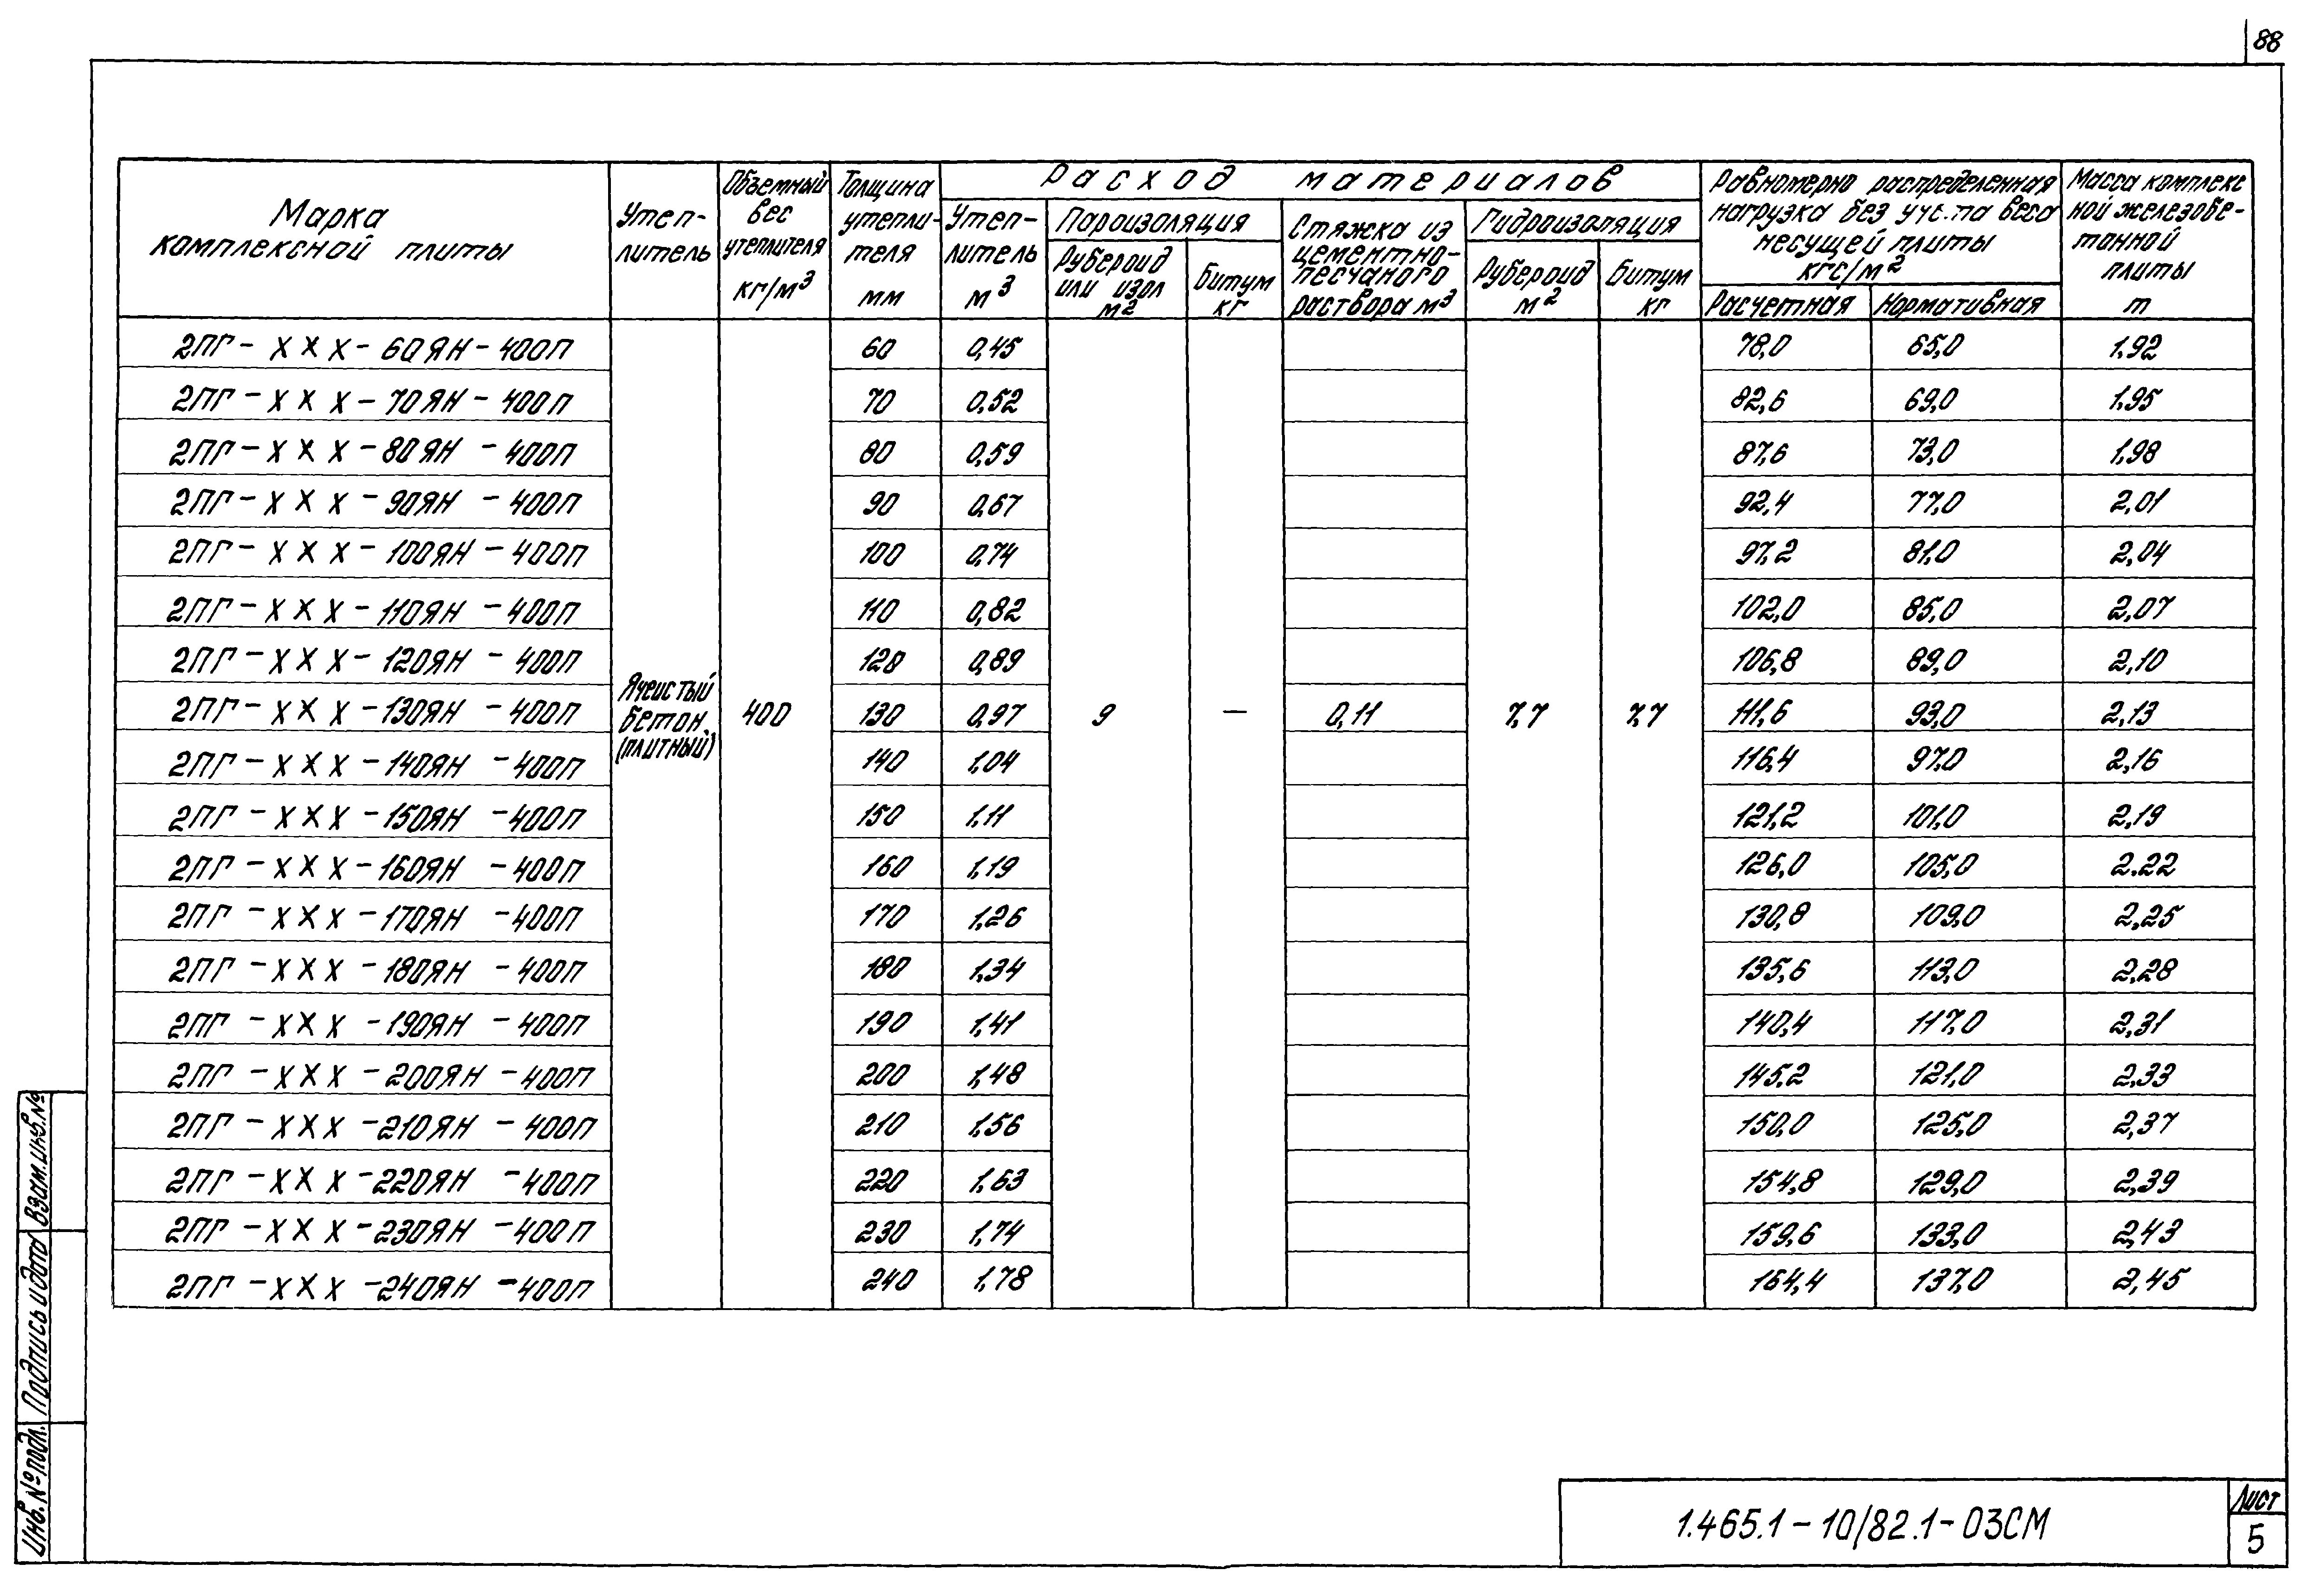 88
Марка комплексной плиты
Утеп-литель
Объемный вес утеплителя кг/м³
Толщина утепли-теля мм
Расход материалов
Утеп-литель м³
Пароизоляция
Рубероид или изол м²
Битум кг
Стяжка из цементно-песчаного раствора м³
Гидроизоляция
Рубероид м²
Битум кг
Равномерно распределенная нагрузка без уч.та веса несущей плиты кгс/м²
Расчетная
Нормативная
Масса комплекс ной железобе-тонной плиты т
2ПГ-ххх-60ЯН-400П 60 0,45 78,0 65,0 1,92
2ПГ-ххх-70ЯН-400П 70 0,52 82,6 69,0 1,95
2ПГ-ххх-80ЯН-400П 80 0,59 87,6 73,0 1,98
2ПГ-ххх-90ЯН-400П 90 0,67 92,4 77,0 2,01
2ПГ-ххх-100ЯН-400П 100 0,74 97,2 81,0 2,04
2ПГ-ххх-110ЯН-400П 110 0,82 102,0 85,0 2,07
2ПГ-ххх-120ЯН-400П 120 0,89 106,8 89,0 2,10
2ПГ-ххх-130ЯН-400П Ячеистый бетон (плитный) 400 130 0,97 9 — 0,11 7,7 7,7 111,6 93,0 2,13
2ПГ-ххх-140ЯН-400П 140 1,04 116,4 97,0 2,16
2ПГ-ххх-150ЯН-400П 150 1,11 121,2 101,0 2,19
2ПГ-ххх-160ЯН-400П 160 1,19 126,0 105,0 2.22
2ПГ-ххх-170ЯН-400П 170 1,26 130,8 109,0 2,25
2ПГ-ххх-180ЯН-400П 180 1,34 135,6 113,0 2,28
2ПГ-ххх-190ЯН-400П 190 1,41 140,4 117,0 2,31
2ПГ-ххх-200ЯН-400П 200 1,48 145,2 121,0 2,33
2ПГ-ххх-210ЯН-400П 210 1,56 150,0 125,0 2,37
2ПГ-ххх-220ЯН-400П 220 1,63 154,8 129,0 2,39
2ПГ-ххх-230ЯН-400П 230 1,74 159,6 133,0 2,43
2ПГ-ххх-240ЯН-400П 240 1,78 164,4 137,0 2,45
Инв. № подл. Подпись и дата Взам.инв.№
1.465.1-10/82.1-03СМ
Лист
5